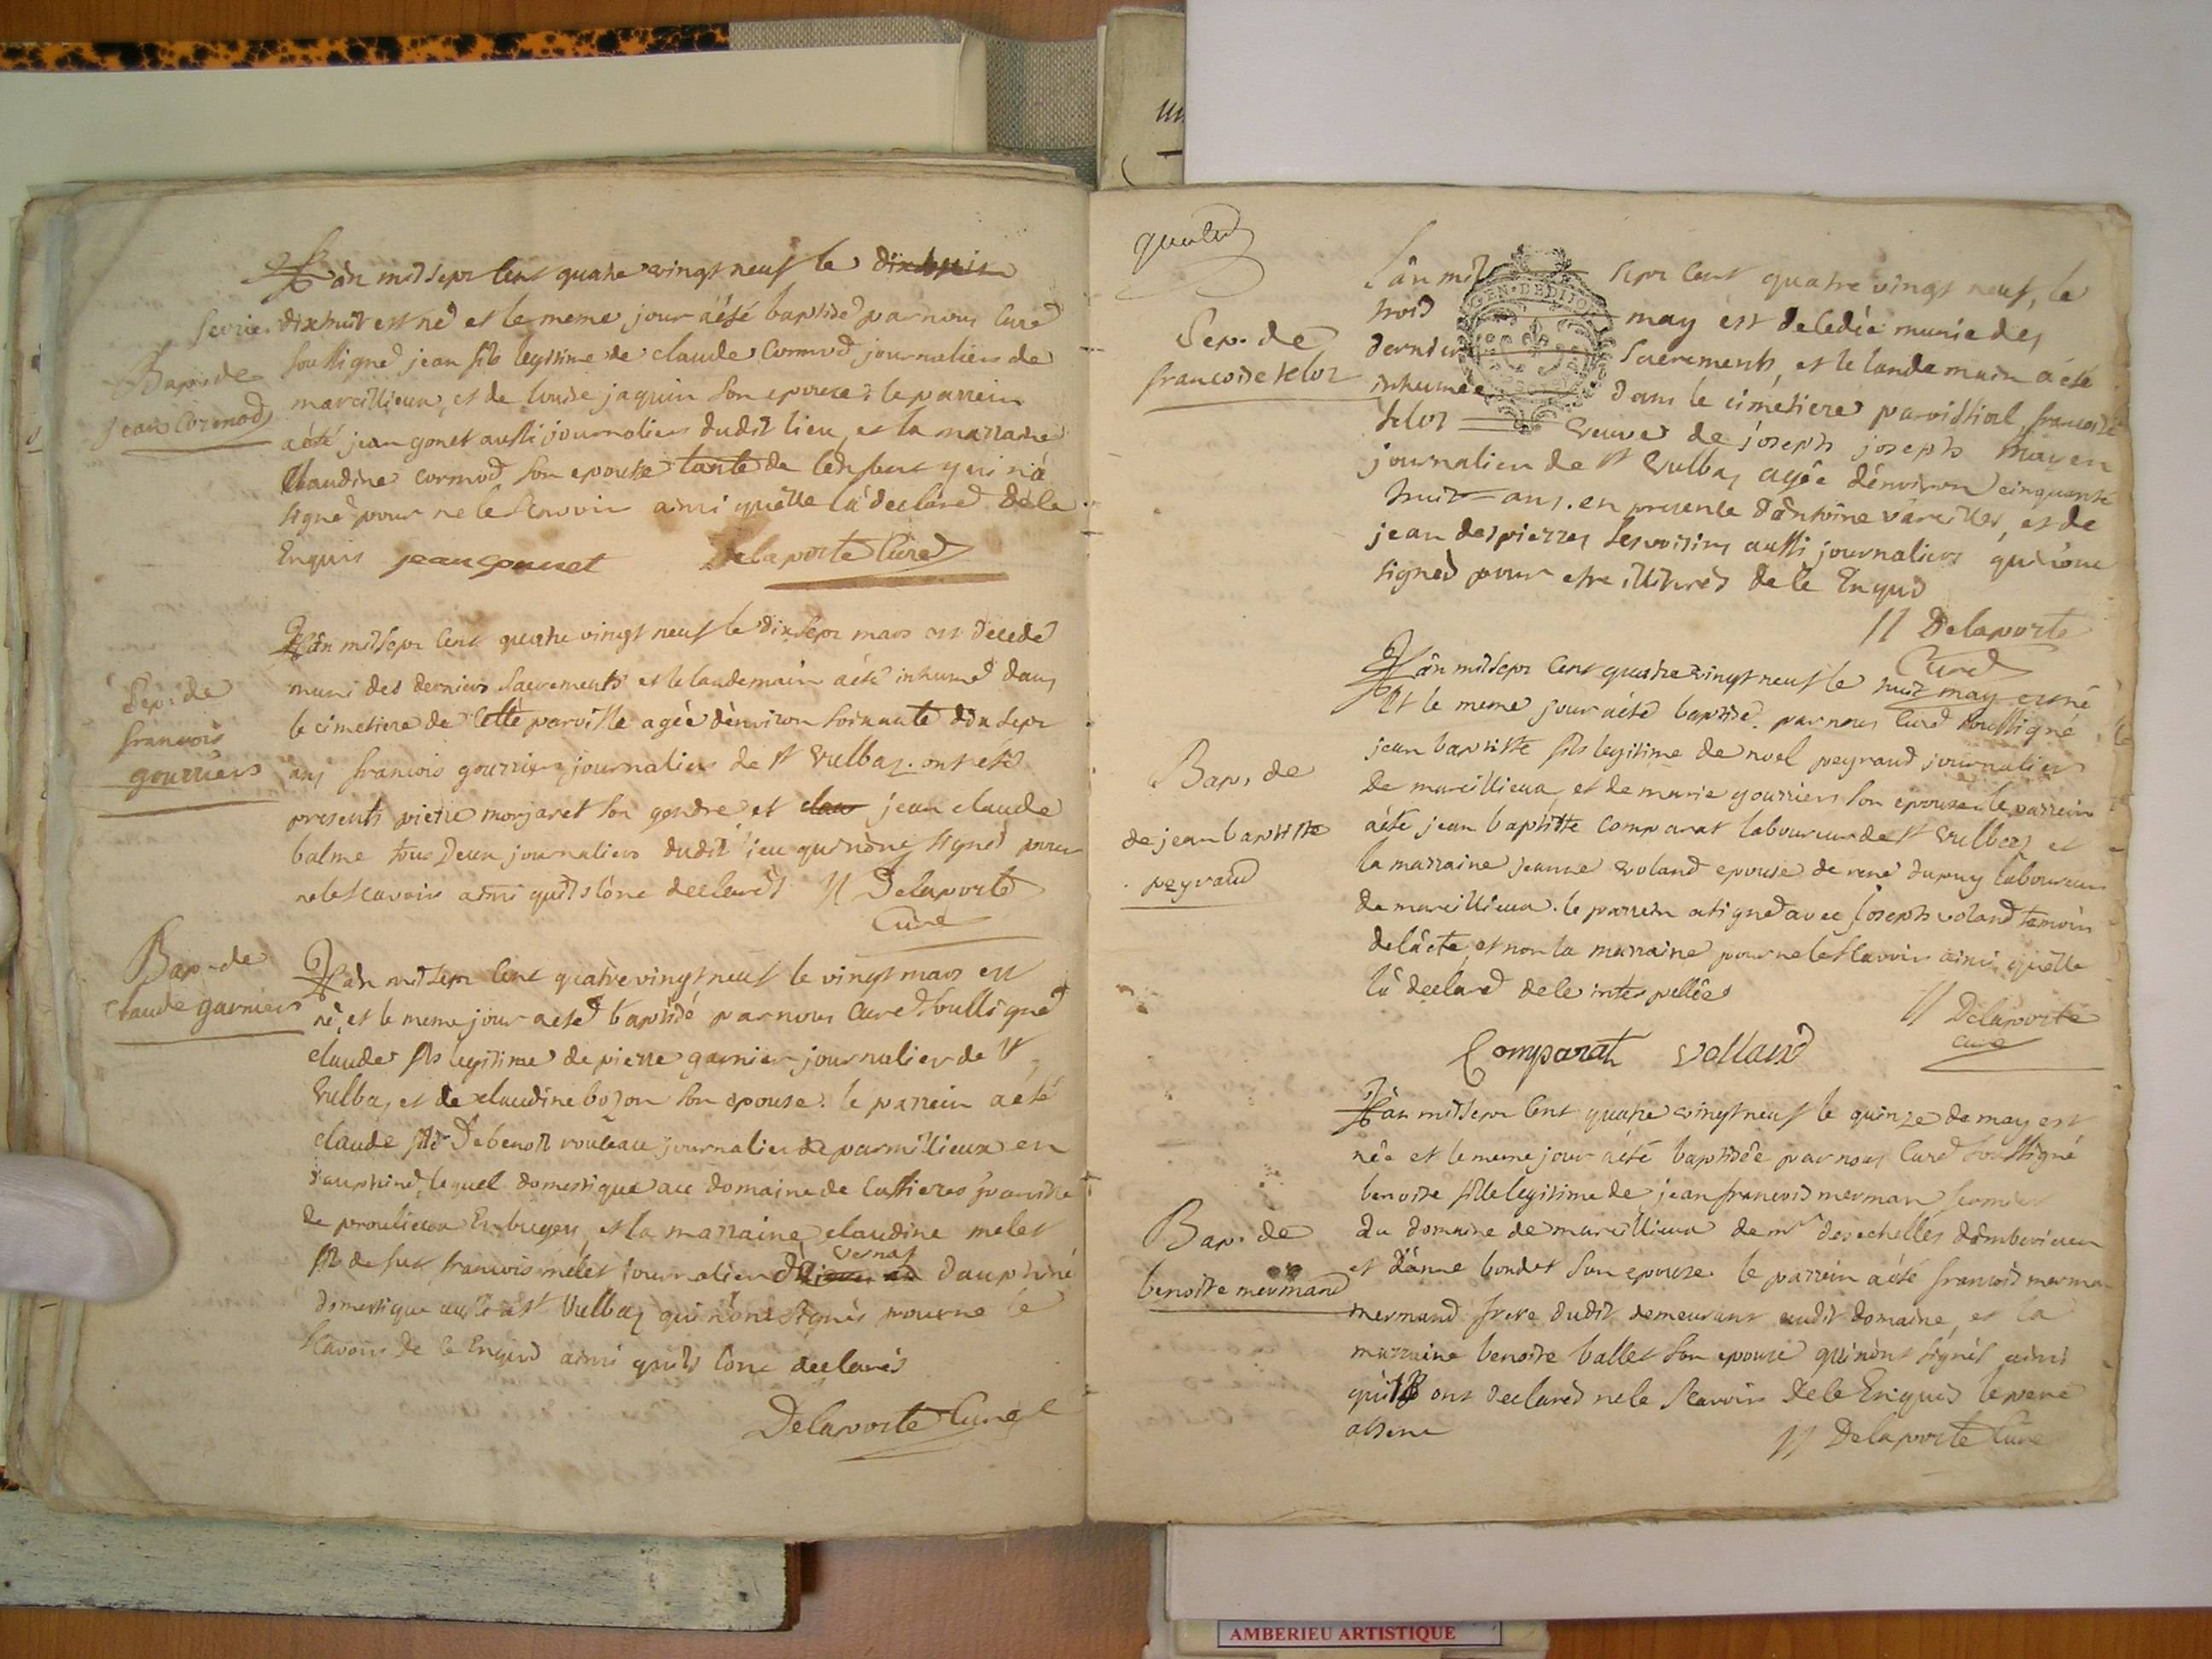 Lân mil sept Cent quatre vingt neuf le dixhuit
fevrier dixhuit est né et le meme jour a été baptisé par nous Curé
Bap. de
jean Cormod
soussigné jean fils legitime de claude Cormod journalier de
marcillieux, et de louise jaquin son epouse: le parrein
a été jean gonet aussi journalier dudit lieu, et la marraine
Claudine cormod son epouse tante de lenfant qui n'a
signé pour ne le scavoir ainsi qu'elle la declaré de le
Enquis jean gonnet Delaporte Curé
Sep. de
francois
gourrier
Lân mil sept Cent quatre vingt neuf le dix sept mars est decedé
muni des derniers sacrements et le landemain a été inhumé dans
le cimetiere de Cette paroisse agée d'environ soixante dix sept
ans francois gourrier journalier de st Vulbas. ont eté
presents pierre morjaret son gendre et jean claude
balme tous Deux journaliers dudit lieu qui n'ont signés pour
ne le scavoir ainsi qu'ils l'ont declarés Delaporte
Curé
Bap. de
claude garnier
Lân mil sept Cent quatre vingt neuf le vingt mars est
né, et le meme jour a eté baptisé par nous Curé soussigné
claude fils legitime de pierre garnier journalier de st
Vulbas, et de claudine bozon son epouse. le parrein a été
claude fils De benoit rouleau journalier de parmilieux en
dauphiné, lequel domestique au domaine de Cassieres paroisse
de proulieu En bugey, et la marraine claudine melet
fille de fut francois melet journalier de vernas dauphiné
domestique aussi a st Vulbas qui n'ont signés pour ne le
scavoir de le Enquis ainsi qu'ils l'ont declarés
Delaporte Curé
Sep. de
francoise telor
Lân mil sept cent quatre vingt neuf, le
trois may est decedée munie des
derniers sacrements, et le landemain a été
inhumée dans le cimetiere paroissial, francoise
telor veuve de joseph joseph mayen
journalier de st Vulbas agée d'environ cinquante
huit ans. en presence d'antoine vareilles, et de
jean despierres ses voisins aussi journaliers qui n'ont
signés pour etre illitéres de le Enquis
Delaporte
Curé
Bap. de
de jean baptiste
peyraud
Lân mil sept Cent quatre vingt neuf le huit may est né
Et le meme jour a été baptisé par nous Curé soussigné
jean baptiste fils legitime de noel peyraud journalier
de marcillieux, et de marie gourrier son epouse. le parrein
a été jean baptiste comparat laboureur de st Vulbas et
la marraine jeanne voland epouse de rené dupuy laboureur
de marcillieux. le parrein a signé avec joseph voland temoin
de l'acte, et non la marraine pour ne le scavoir ainsi qu'elle
la declaré de le interpellée
Delaporte
curé
Comparat volland
Bap. de
benoite mermand
Lân mil sept Cent quatre vingt neuf le quinze de may est
née et le meme jour a été baptisée par nous Curé soussigné
benoite fille legitime de jean francois merman fermier
du domaine de marcillieux de mr desechelles d'ambérieux
et d'anne bondet son epouse. le parrein a été francois merman
mermand frere dudit demeurant audit domaine, et la
marraine benoite ballet son epouse qui n'ont signés ainsi
qu'ils ont declarés ne le scavoir de le Enquis le pere
absent Delaporte Curé
AMBERIEU ARTISTIQUE